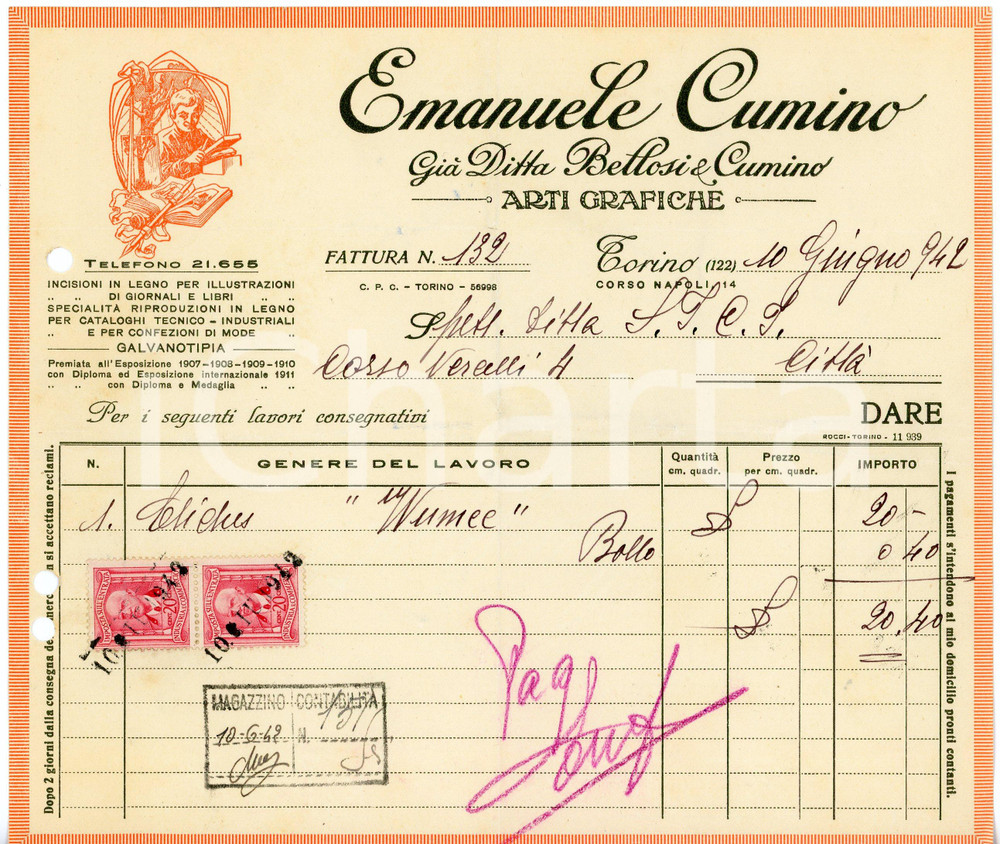 Emanuele Cumino
Già Ditta Bellosi & Cumino
ARTI GRAFICHE
TELEFONO 21.655
INCISIONI IN LEGNO PER ILLUSTRAZIONI
„ „ DI GIORNALI E LIBRI „ „
SPECIALITÀ RIPRODUZIONI IN LEGNO
PER CATALOGHI TECNICO - INDUSTRIALI
„ E PER CONFEZIONI DI MODE „
GALVANOTIPIA
Premiata all'Esposizione 1907-1908-1909-1910
con Diploma ed Esposizione internazionale 1911
„ „ con Diploma e Medaglia „ „
FATTURA N. 132
C. P. C. - TORINO - 56998
Torino (122) 10 Giugno 942
CORSO NAPOLI 14
Spett. Ditta S.T.C.I.
Corso Vercelli 4 Città
Per i seguenti lavori consegnativi
DARE
ROCCI - TORINO - 11 939
N. GENERE DEL LAVORO Quantità cm. quadr. Prezzo per cm. quadr. IMPORTO
1. Cliches " Wumee " 20 -
Bollo 0 40
20.40
IMPOSTA SULL'ENTRATA
CENT. 20
IMPOSTA SULL'ENTRATA
CENT. 20
MAGAZZINO CONTABILITÀ
10-6-42 N.
Dopo 2 giorni dalla consegna non si accettano reclami.
I pagamenti s'intendono al mio domicilio pronti contanti.
iCharta